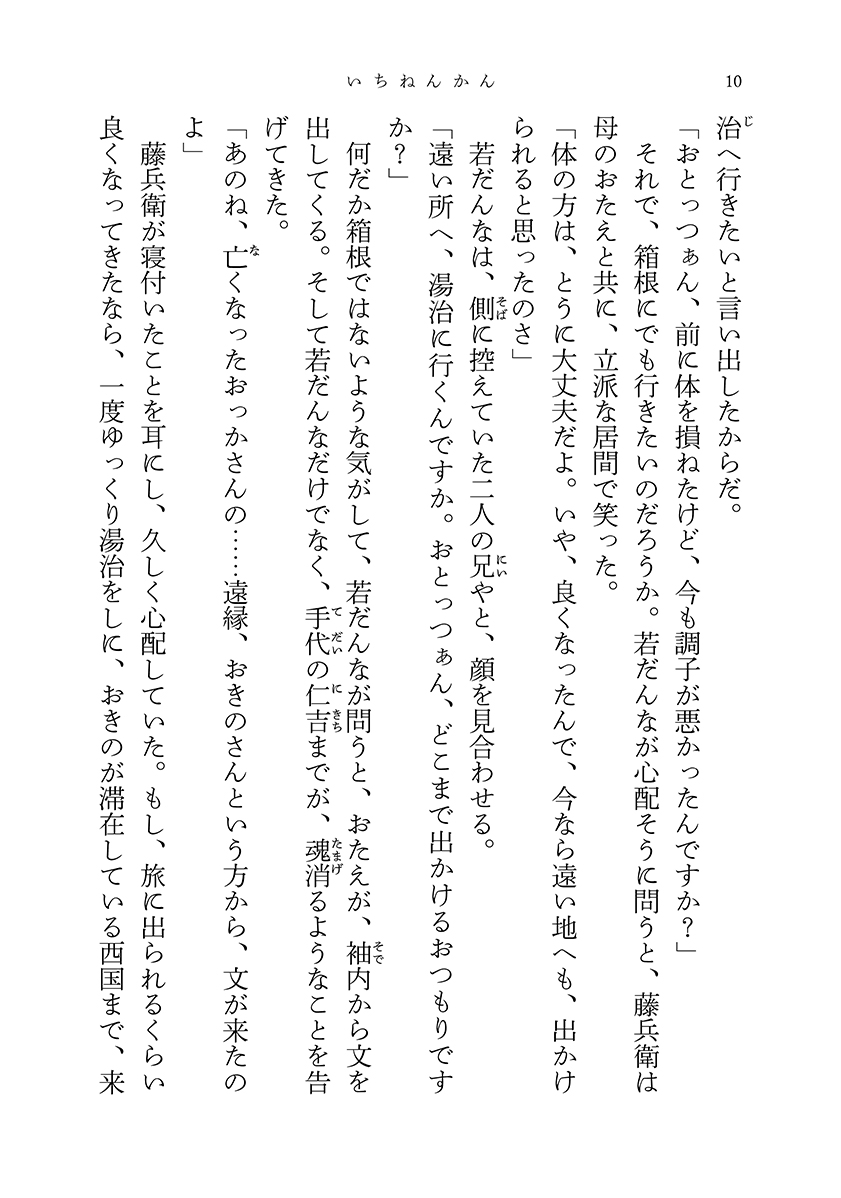 いちねんかん
10
治へ行きたいと言い出したからだ。
「おとっつぁん、前に体を損ねたけど、今も調子が悪かったんですか？」
それで、箱根にでも行きたいのだろうか。若だんなが心配そうに問うと、藤兵衛は
母のおたえと共に、立派な居間で笑った。
「体の方は、とうに大丈夫だよ。いや、良くなったんで、今なら遠い地へも、出かけ
られると思ったのさ」
若だんなは、側に控えていた二人の兄やと、顔を見合わせる。
「遠い所へ、湯治に行くんですか。おとっつぁん、どこまで出かけるおつもりです
か？」
何だか箱根ではないような気がして、若だんなが問うと、おたえが、袖内から文を
出してくる。そして若だんなだけでなく、手代の仁吉までが、魂消るようなことを告
げてきた。
「あのね、亡くなったおっかさんの……遠縁、おきのさんという方から、文が来たの
よ」
藤兵衛が寝付いたことを耳にし、久しく心配していた。もし、旅に出られるくらい
良くなってきたなら、一度ゆっくり湯治をしに、おきのが滞在している西国まで、来